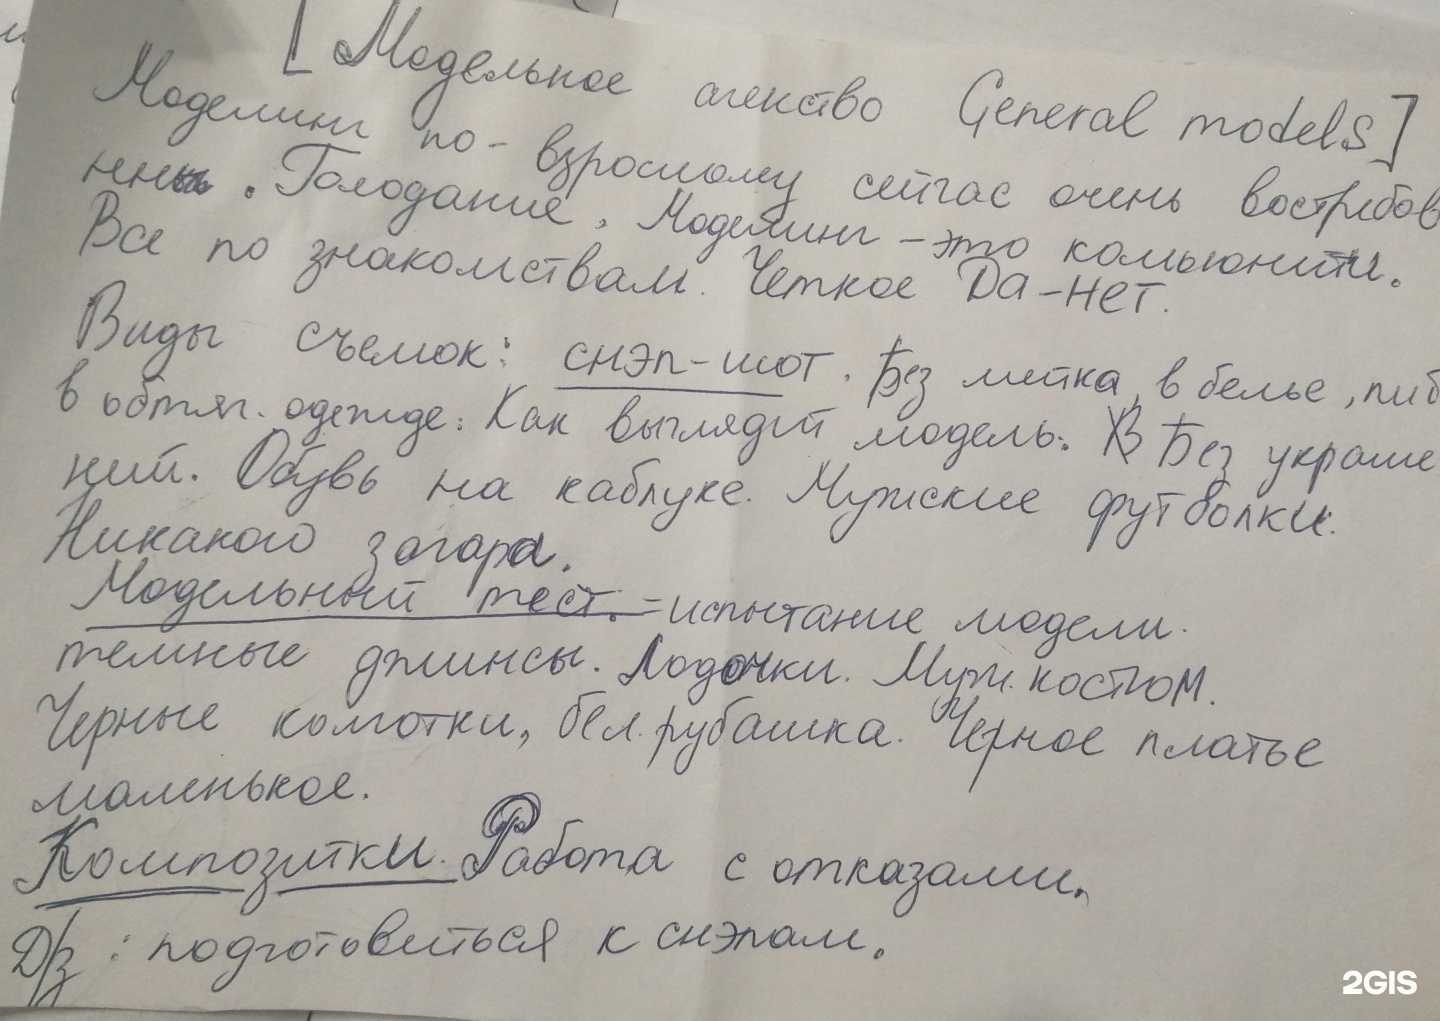 [Модельное агенство General models]
Моделинг по-взрослому сейчас очень востребов
нны. Голодание. Моделинг – это комьюнити.
Все по знакомствам. Четкое Да-нет.
Виды съемок: снэп-шот. Без мейка, в белье, либ
в обтяг. одежде. Как выглядит модель. Без украше
ний. Обувь на каблуке. Мужские футболки.
Никакого загара.
Модельный тест. – испытание модели.
темные джинсы. Лодочки. Муж. костюм.
Черные колготки, бел. рубашка. Черное платье
маленькое.
Композитки. Работа с отказами.
Д/з: подготовиться к снэпам.
2GIS